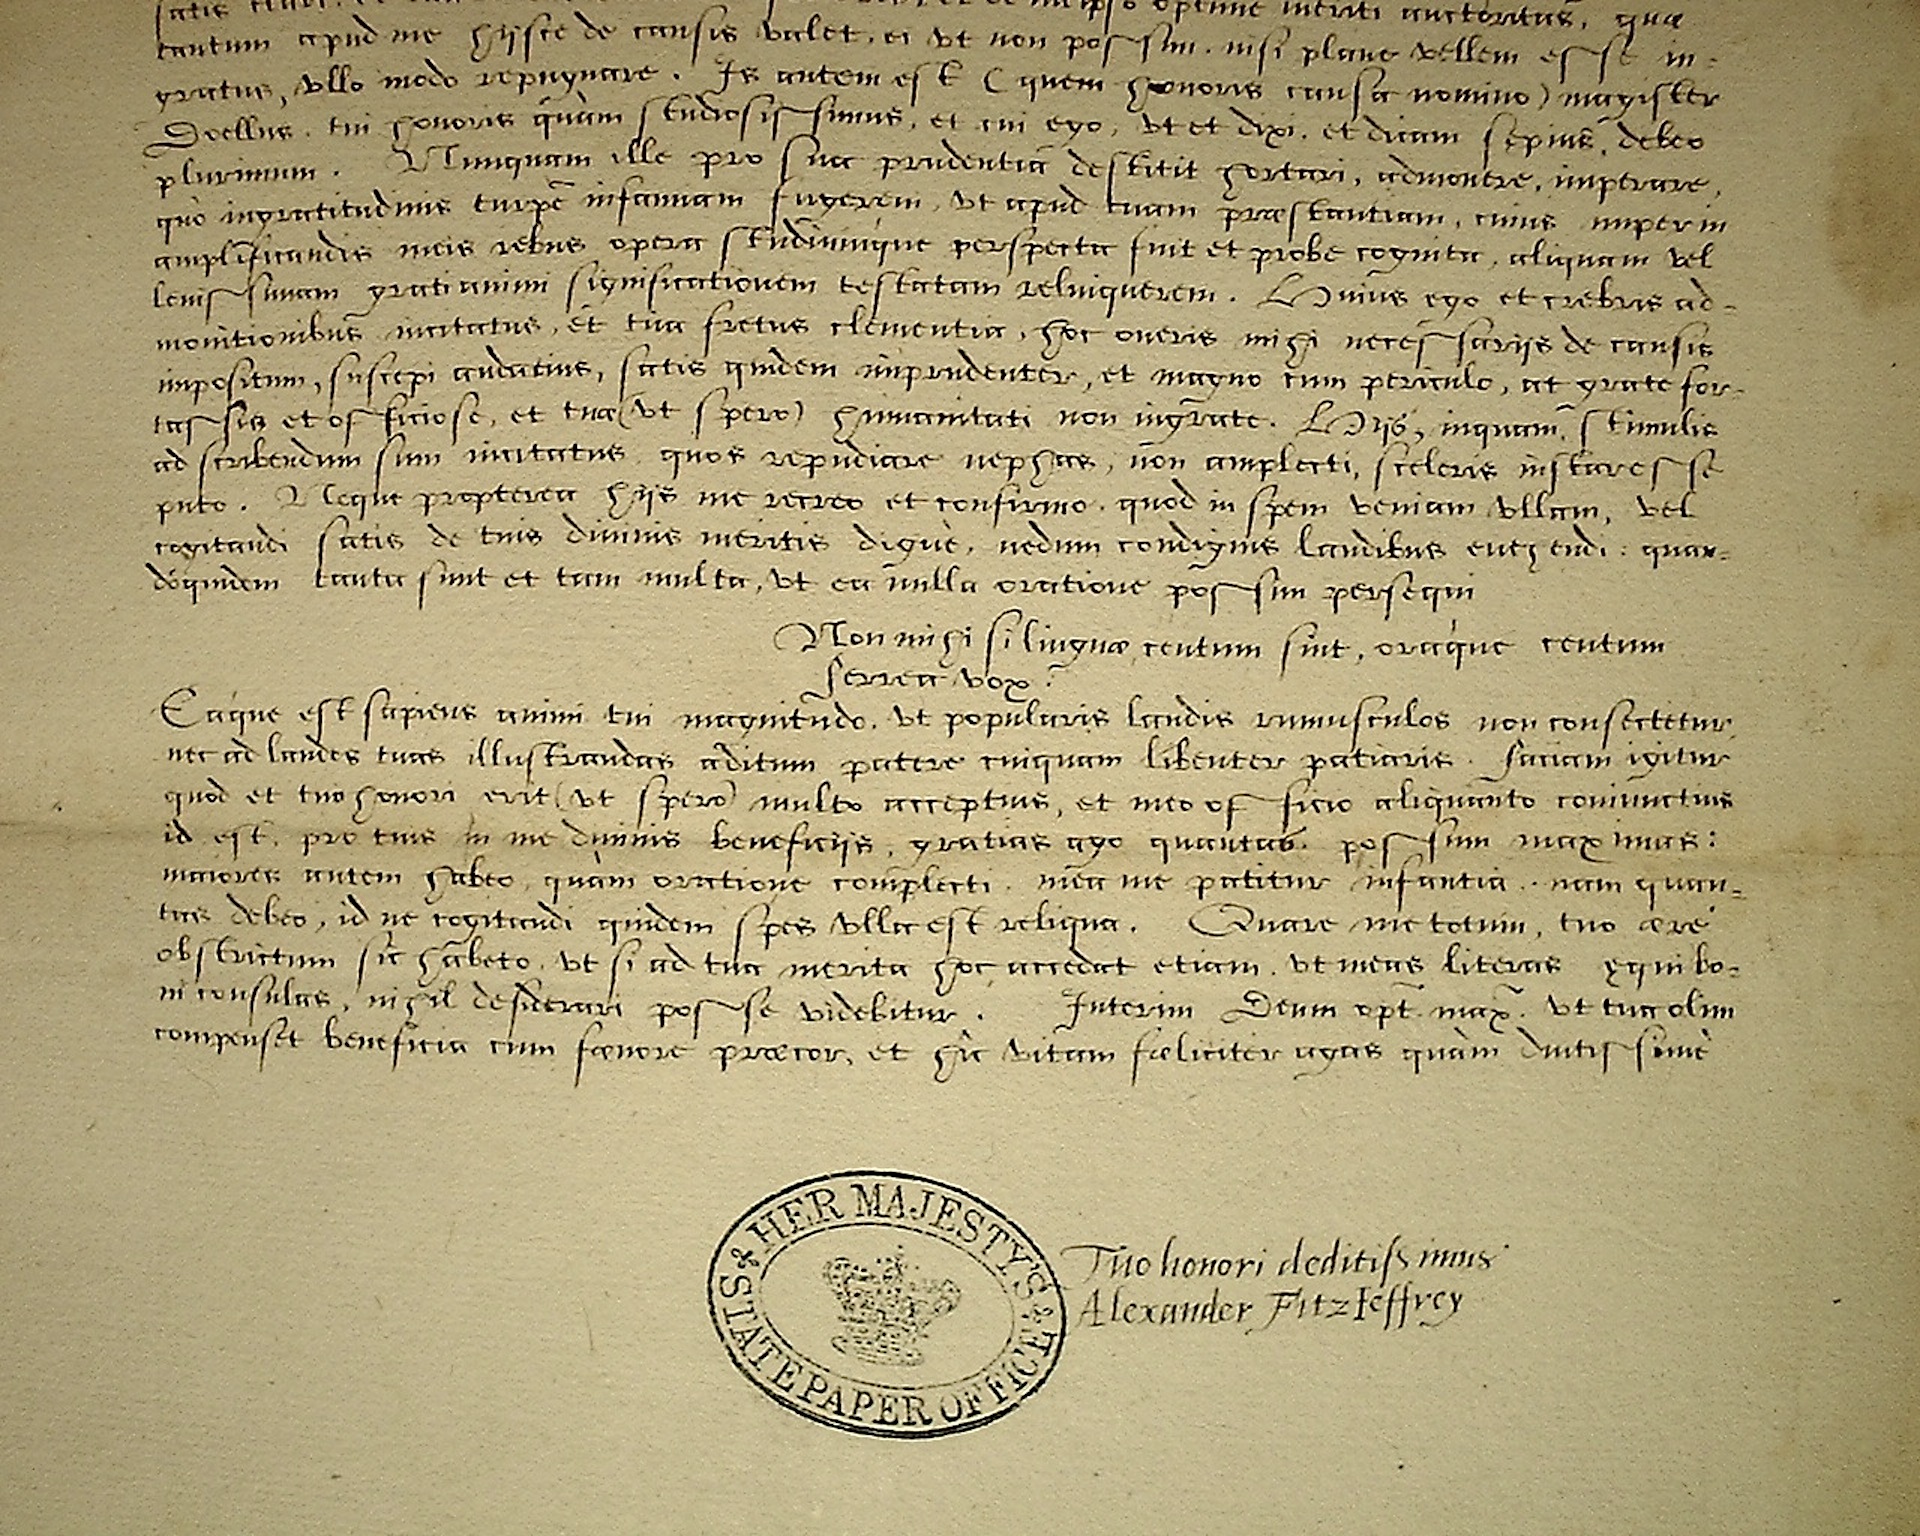 optime meriti auctoritas, quæ
tantum apud me hijsce de causis valet, ei vt non possim, nisi plane vellem esse in-
gratus, vllo modo repugnare. Is autem est (quem honoris causa nomino) magister
Doellus, tui honoris quàm studiosissimus, et cui ego, vt et dixi, et dicam sępius, debeo
plurimum. Nunquam ille pro sua prudentia destitit hortari, admonere, imperare,
quò ingratitudinis turpē infamiam fugerem, vt apud tuam præstantiam, cuius nuper in
amplificandis meis rebus opera studiumque perspecta fuit et probe cognita, aliquam vel
leuissimam grati animi significationem testatam relinquerem. Huius ego et crebris ad-
monitionibus incitatus, et tua fretus clementia, hoc oneris mihi necessarijs de causis
impositum, suscepi audatius, satis quidem imprudenter, et magno cum periculo, at grate for-
tassis et officiose, et tuæ (vt spero) humanitati non ingrate. Hijs, inquam, stimulis
ad scribendum sum incitatus, quos repudiare nephas, non amplecti, sceleris instar esse
puto. Neque propterea hijs me recreo et confirmo, quod in spem veniam vllam, vel
cogitandi satis de tuis diuinis meritis dignè, nedum condignis laudibus euehendi: quan-
dóquidem tanta sunt et tam multa, vt ea nulla oratione possim persequi
Non mihi si linguæ centum sint, oráque centum
ferrea vox.
Eáque est sapiens animi tui magnitudo, vt popularis laudis rumusculos non consectetur,
nec ad laudes tuas illustrandas aditum patere cuiquam libenter patiaris. faciam igitur
quod et tuo honori erit (vt spero) multo acceptius, et meo officio aliquanto coniunctius
id est, pro tuis in me diuinis beneficijs, gratias ago quantas possum maximas:
maiores autem habeo, quàm oratione complecti mea me patitur infantia. nam quan-
tas debeo, id ne cogitandi quidem spes vlla est reliqua. Quare me totum, tuo ære
obstrictum sic habeto, vt si ad tua merita hoc accedat etiam, vt meas literas ęqui bo-
ni consulas, nihil desiderari posse videbitur. Interim Deum opt. max. vt tua olim
compenset beneficia cum fœnore præcor, et hîc vitam fæliciter agas quàm diutissimè
Tuo honori deditissimus
Alexander FitzIeffrey
HER MAJESTY'S
STATE PAPER OFFICE